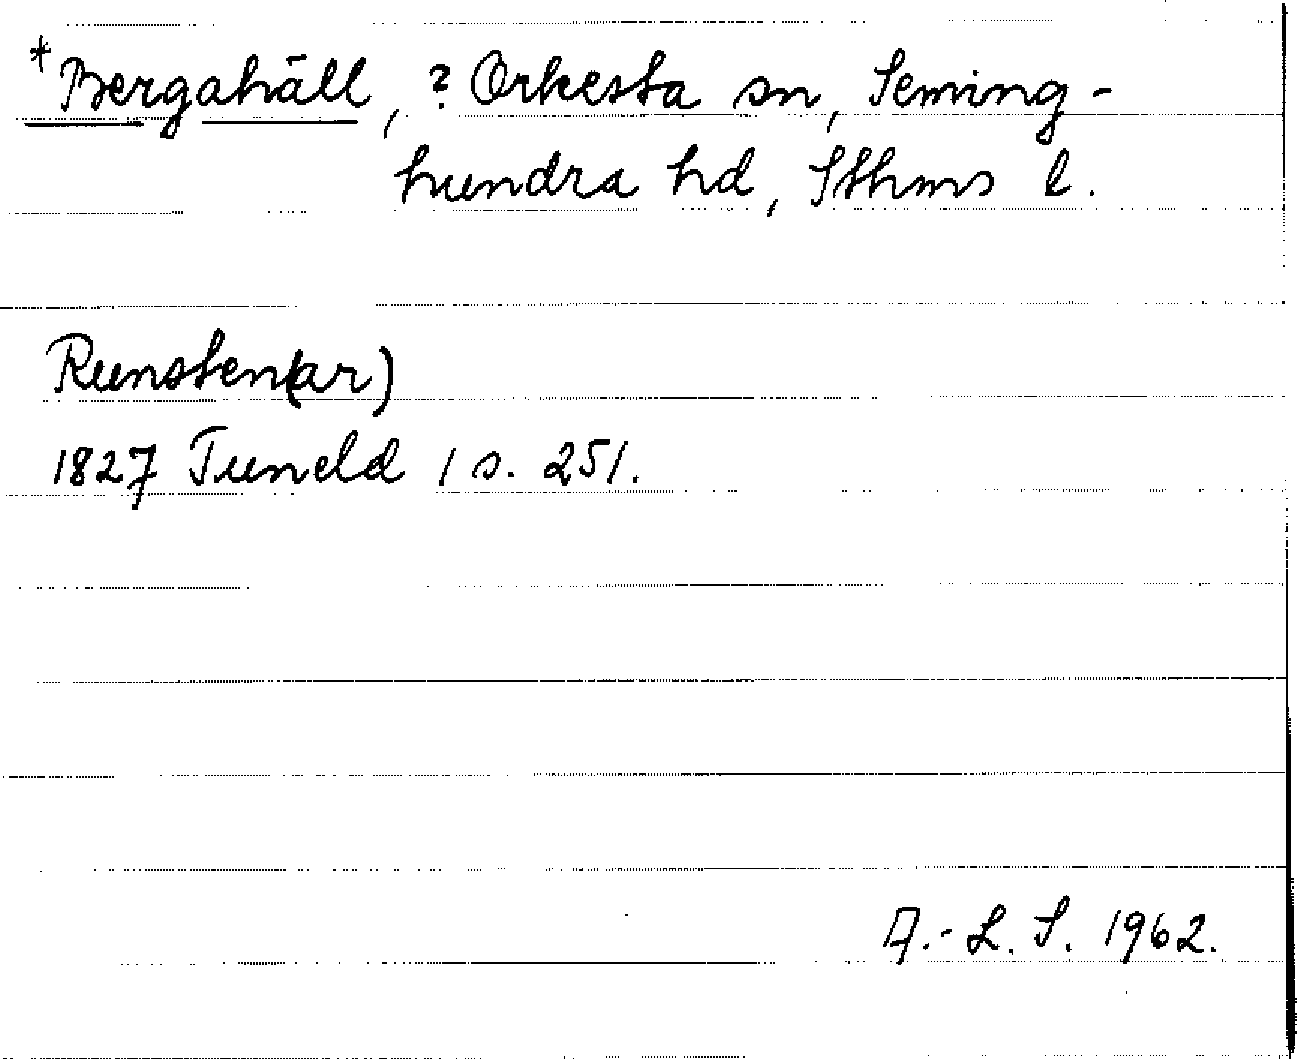 *Bergahäll, ? Orkesta sn, Seming-
hundra hd, Sthms l.
Runsten(ar)
1827 Tuneld 1 s. 251.
A.-L. S. 1962.